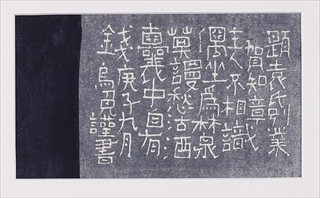 題袁氏別業
賀知章
主人不相識
偶坐爲林泉
莫謾愁沽酒
囊中自有
錢庚子九月
烏兎謹書